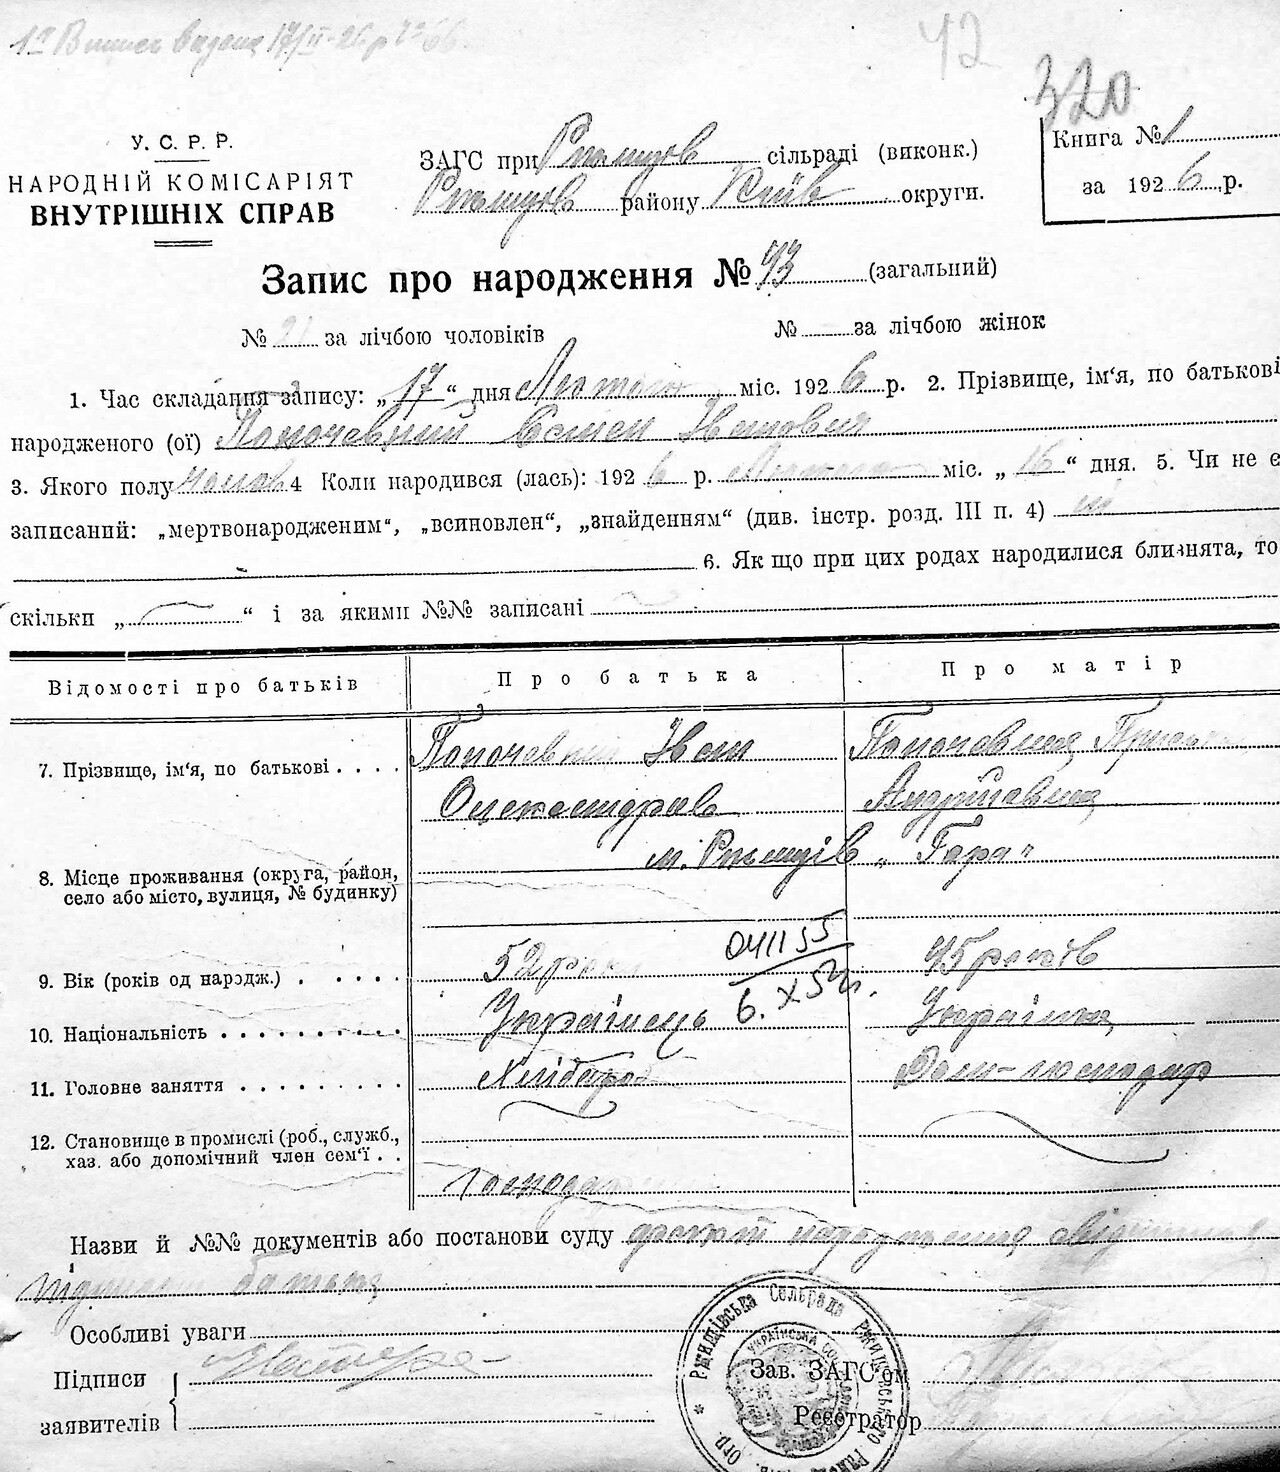 1а Випись видана 17/II-26 р
42
320
У. С. Р. Р.
НАРОДНІЙ КОМІСАРІЯТ
ВНУТРІШНІХ СПРАВ
ЗАГС при Ржищев сільраді (виконк.)
Ржищев району Київ округи.
Книга № 1
за 1926 р.
Запис про народження № 43 (загальний)
№ 21 за лічбою чоловіків № за лічбою жінок
1. Час складання запису: „17“ дня Лютого міс. 1926 р. 2. Прізвище, ім‘я, по батькові
народженого (ої) Семен Іванович
3. Якого полу чолов 4 Коли народився (лась): 1926 р. Лютого міс. „16“ дня. 5. Чи не є
записаний: „мертвонародженим“, „всиновлен“, „знайденням“ (див. інстр. розд. III п. 4) ні
6. Як що при цих родах народилися близнята, то
скільки „ “ і за якими №№ записані
Відомості про батьків Про батька Про матір
7. Прізвище, ім‘я, по батькові . . . . Іван
Олександров Андріївна
м. Ржищів „Гора“
8. Місце проживання (округа, район,
село або місто, вулиця, № будинку)
9. Вік (років од народж.) . . . . . 52 роки 45 років
041155
6. X 52г.
10. Національність . . . . . . . . . Українець Українка
11. Головне заняття . . . . . . . . Хлібороб Дом-господар
12. Становище в промислі (роб., служб.,
хаз. або допомічний член сем‘ї . .
Господар
Назви й №№ документів або постанови суду факт народження
батька
Особливі уваги
Підписи
заявителів
Зав. ЗАГС‘ом
Реєстратор
Ржищівська Сельрада Ржищівського
Українська Соц